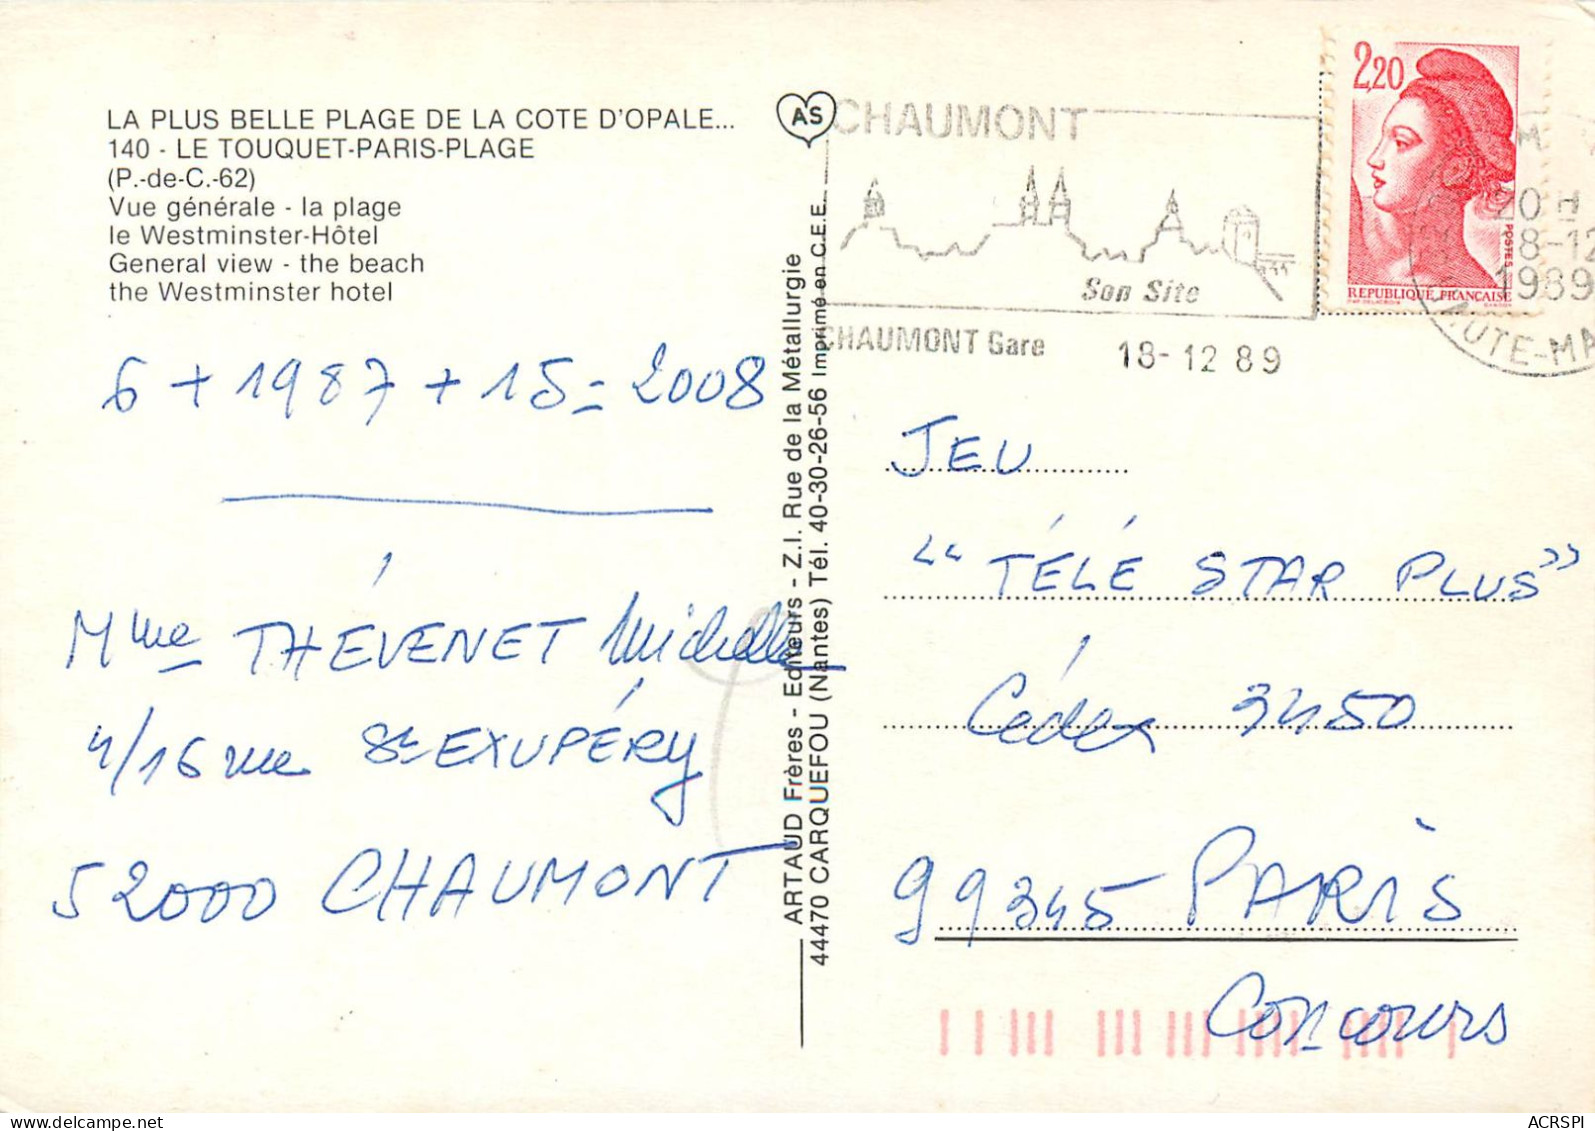 LA PLUS BELLE PLAGE DE LA COTE D'OPALE...
140 - LE TOUQUET-PARIS-PLAGE
(P.-de-C.-62)
Vue générale - la plage
le Westminster-Hôtel
General view - the beach
the Westminster hotel
6 + 1987 + 15 = 2008
Mme THÉVENET Michelle
4/16 rue St EXUPÉRY
52000 CHAUMONT
AS
ARTAUD Frères - Editeurs - Z.I. Rue de la Métallurgie
44470 CARQUEFOU (Nantes) Tél. 40-30-26-56 Imprimé en C.E.E.
CHAUMONT
Son Site
CHAUMONT Gare 18-12 89
2,20
POSTES
REPUBLIQUE FRANÇAISE
20 H
18-12
1989
HAUTE-MA
JEU
"TÉLÉ STAR PLUS"
Cédex 3450
99345 PARIS
Concours
www.delcampe.net
ACRSPI